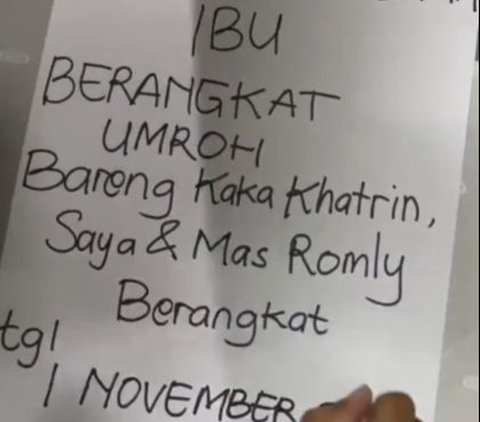 IBU
BERANGKAT
UMROH
Bareng Kaka Khatrin,
Saya & Mas Romly
Berangkat
tgl
1 NOVEMBER